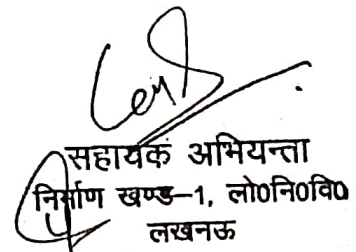 सहायक अभियन्ता
निर्माण खण्ड-1, लो0नि0वि0
लखनऊ